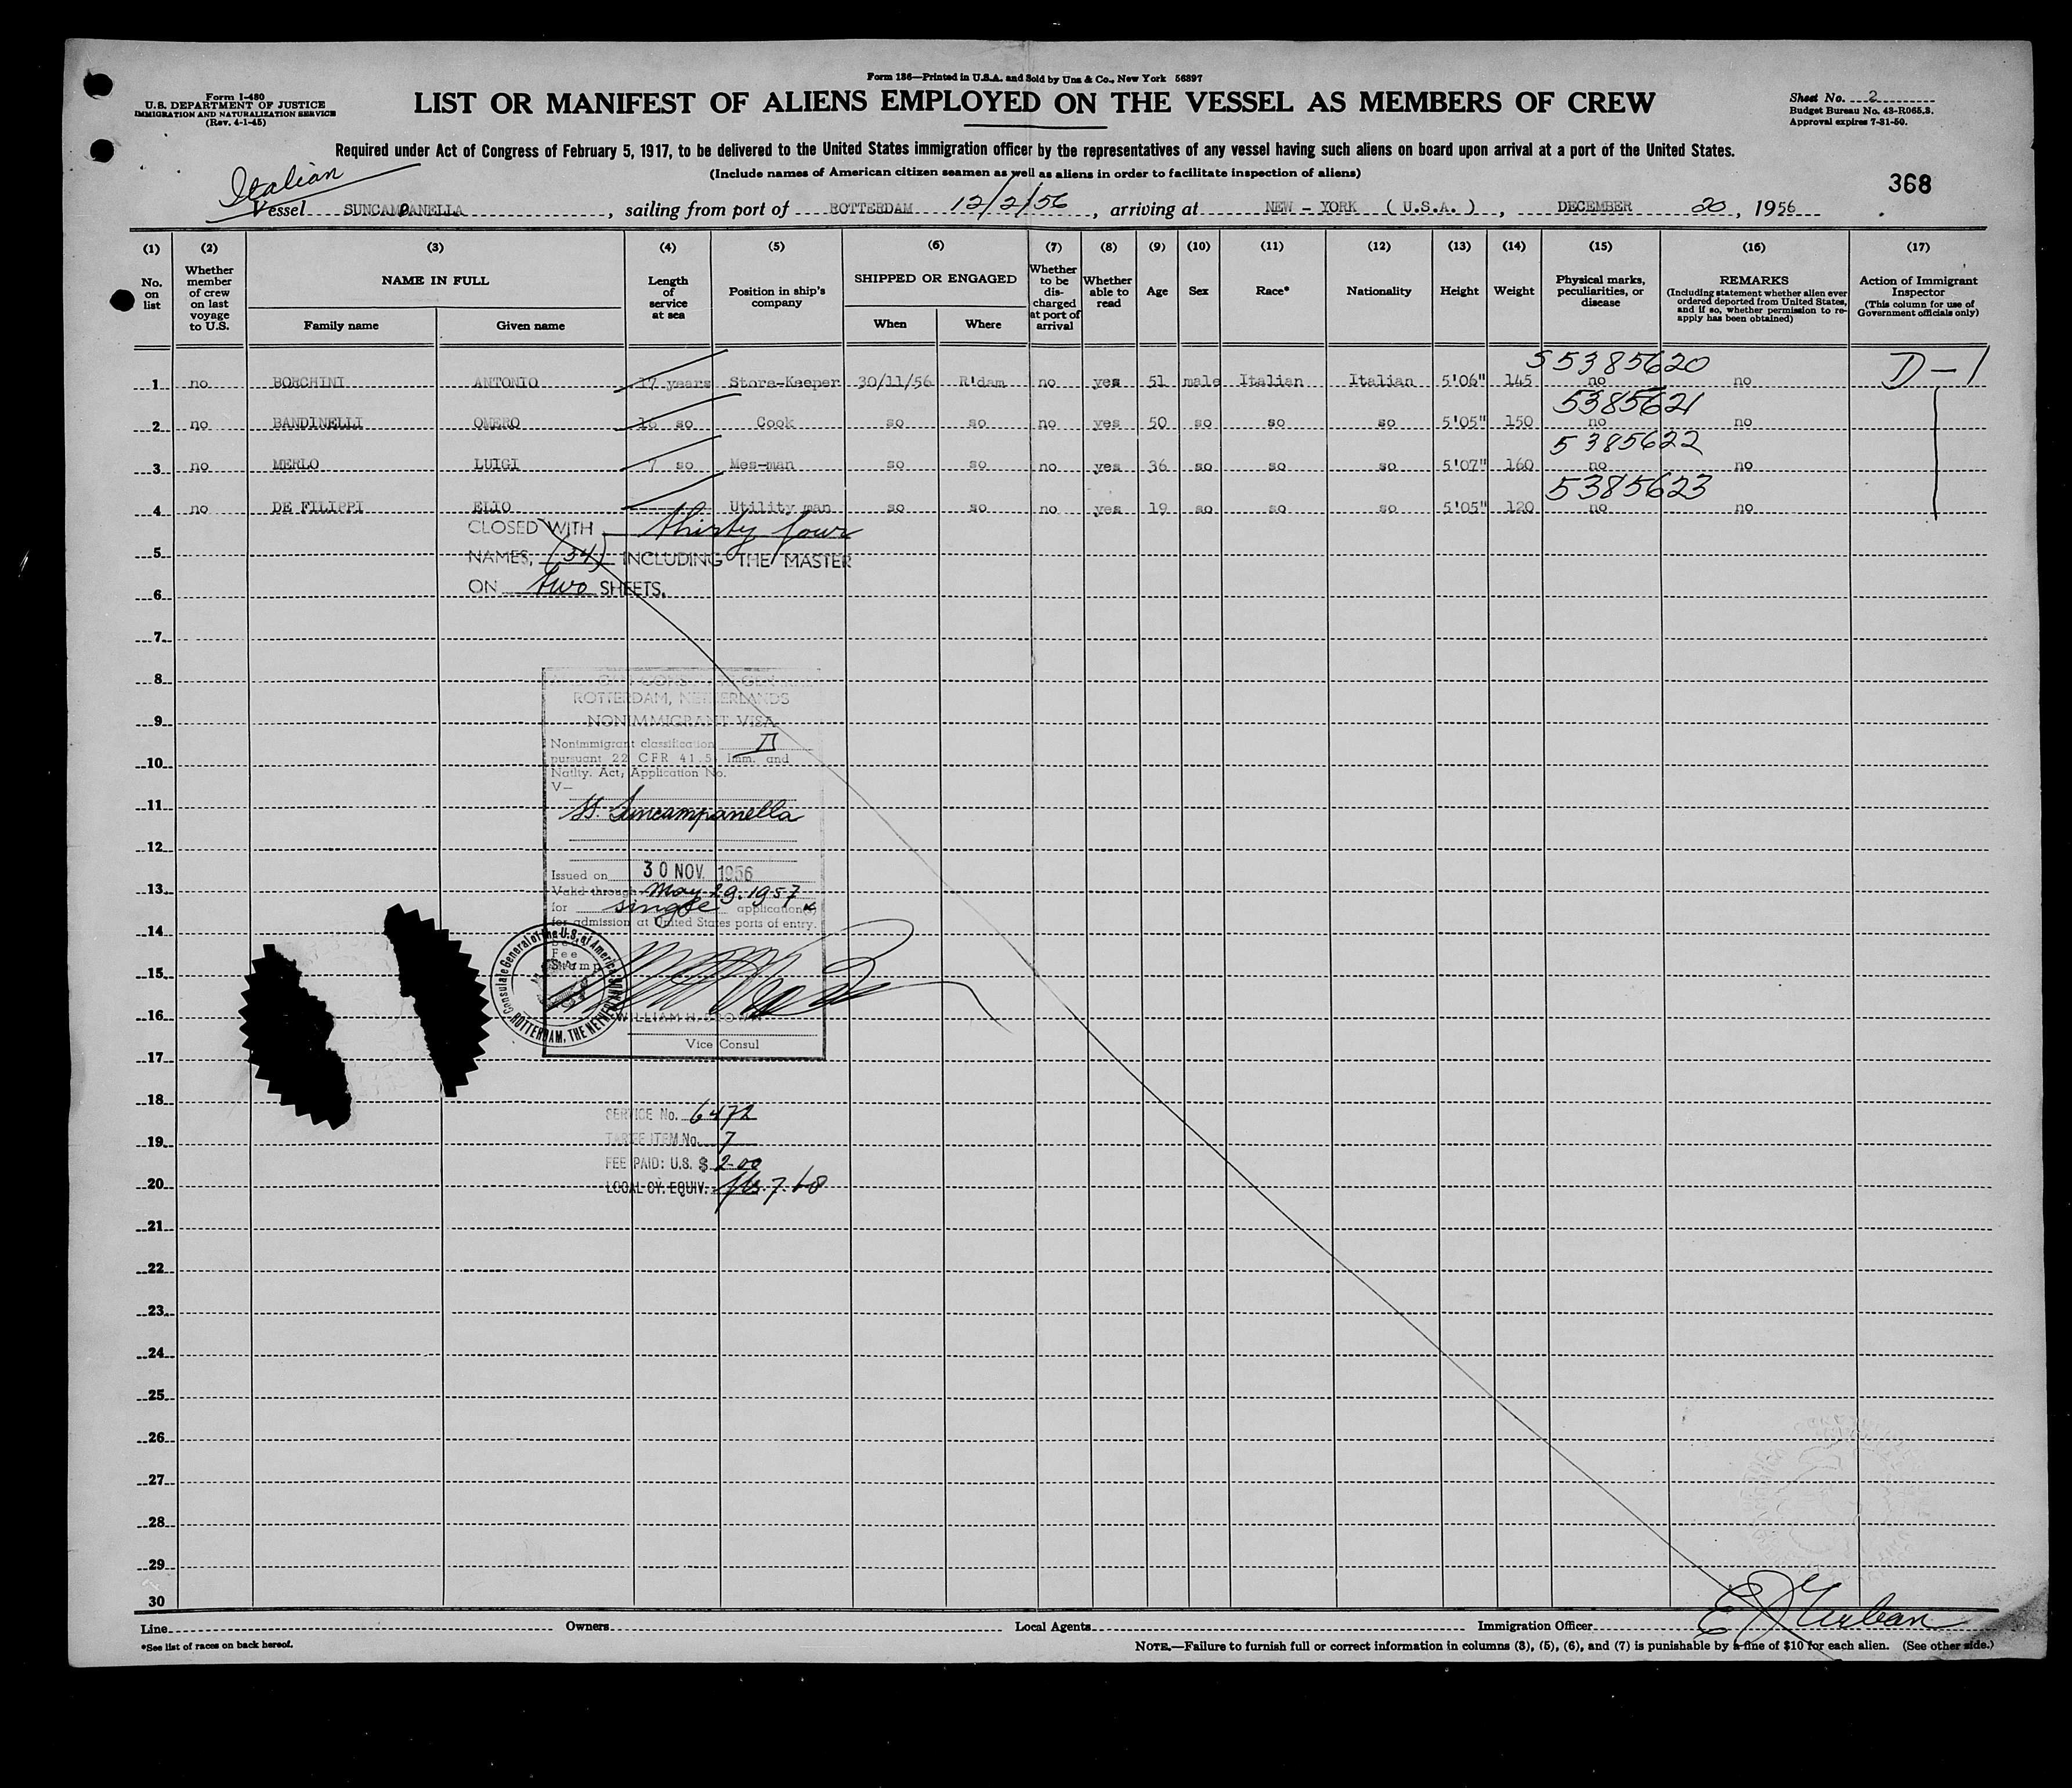 Form 136—Printed in U.S.A. and Sold by Unz & Co., New York 56897
Form I-480
U.S. DEPARTMENT OF JUSTICE
IMMIGRATION AND NATURALIZATION SERVICE
(Rev. 4-1-45)
LIST OR MANIFEST OF ALIENS EMPLOYED ON THE VESSEL AS MEMBERS OF CREW
Sheet No. 2
Budget Bureau No. 43-R065.3.
Approval expires 7-31-50.
Required under Act of Congress of February 5, 1917, to be delivered to the United States immigration officer by the representatives of any vessel having such aliens on board upon arrival at a port of the United States.
(Include names of American citizen seamen as well as aliens in order to facilitate inspection of aliens)
368
Italian
Vessel SUNCAMPANELLA, sailing from port of ROTTERDAM 12/2/56, arriving at NEW - YORK ( U.S.A. ), DECEMBER 20, 1956
(1) (2) (3) (4) (5) (6) (7) (8) (9) (10) (11) (12) (13) (14) (15) (16) (17)
No. on list
Whether member of crew on last voyage to U.S.
NAME IN FULL
Family name
Given name
Length of service at sea
Position in ship's company
SHIPPED OR ENGAGED
When
Where
Whether to be discharged at port of arrival
Whether able to read
Age
Sex
Race*
Nationality
Height
Weight
Physical marks, peculiarities, or disease
REMARKS
(Including statement whether alien ever ordered deported from United States, and if so, whether permission to re-apply has been obtained)
Action of Immigrant Inspector
(This column for use of Government officials only)
S5385620
1 no BORCHINI ANTONIO 17 years Store-Keeper 30/11/56 R'dam no yes 51 male Italian Italian 5'06" 145 no no D-1
5385621
2 no BANDINELLI OMERO 16 so Cook so so no yes 50 so so so 5'05" 150 no no
5385622
3 no MERLO LUIGI 7 so Mes-man so so no yes 36 so so so 5'07" 160 no no
5385623
4 no DE FILIPPI ELIO Utility man so so no yes 19 so so so 5'05" 120 no no
CLOSED WITH thirty four
5
NAMES, (34) INCLUDING THE MASTER
ON two SHEETS.
6
7
8
ROTTERDAM, NETHERLANDS
9
NONIMMIGRANT VISA
Nonimmigrant classification
pursuant 22 CFR 41.5 Imm. and
10
Natlty. Act; Application No.
V—
11
SS. Suncampanella
12
Issued on 30 NOV. 1956
13
Valid through May 29. 1957
for single application(s)
for admission at United States ports of entry.
14
Fee
Stamp
Consulate General of the U.S. of America
ROTTERDAM, THE NETHERLANDS
15
16
WILLIAM H. BROWN
Vice Consul
17
18
SERVICE No. 6472
19
TARIFF ITEM No. 7
FEE PAID: U.S. $ 2.00
20
LOCAL CY. EQUIV. fls. 7.68
21
22
23
24
25
26
27
28
29
30
Line
Owners
Local Agents
Immigration Officer
*See list of races on back hereof.
NOTE.—Failure to furnish full or correct information in columns (3), (5), (6), and (7) is punishable by a fine of $10 for each alien. (See other side.)